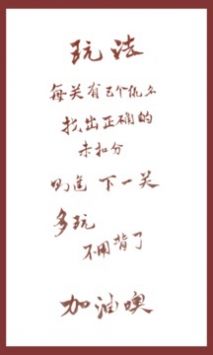 玩法
每关有已个仇名
找出正确的
未扣分
则进 下一关
多玩
不用背了
加油噢